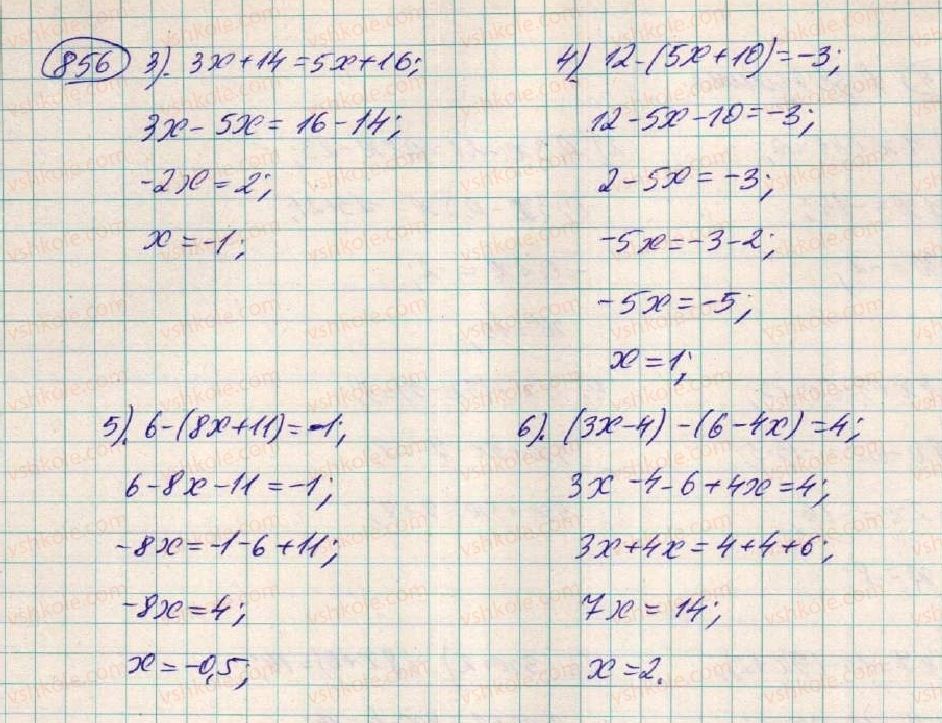 856 3). 3x+14=5x+16;
3x-5x=16-14;
-2x=2;
x=-1;
4) 12-(5x+10)=-3;
12-5x-10=-3;
2-5x=-3;
-5x=-3-2;
-5x=-5;
x=1;
5). 6-(8x+11)=-1;
6-8x-11=-1;
-8x=-1-6+11;
-8x=4;
x=-0,5;
6). (3x-4)-(6-4x)=4;
3x-4-6+4x=4;
3x+4x=4+4+6;
7x=14;
x=2.
vshkole.com